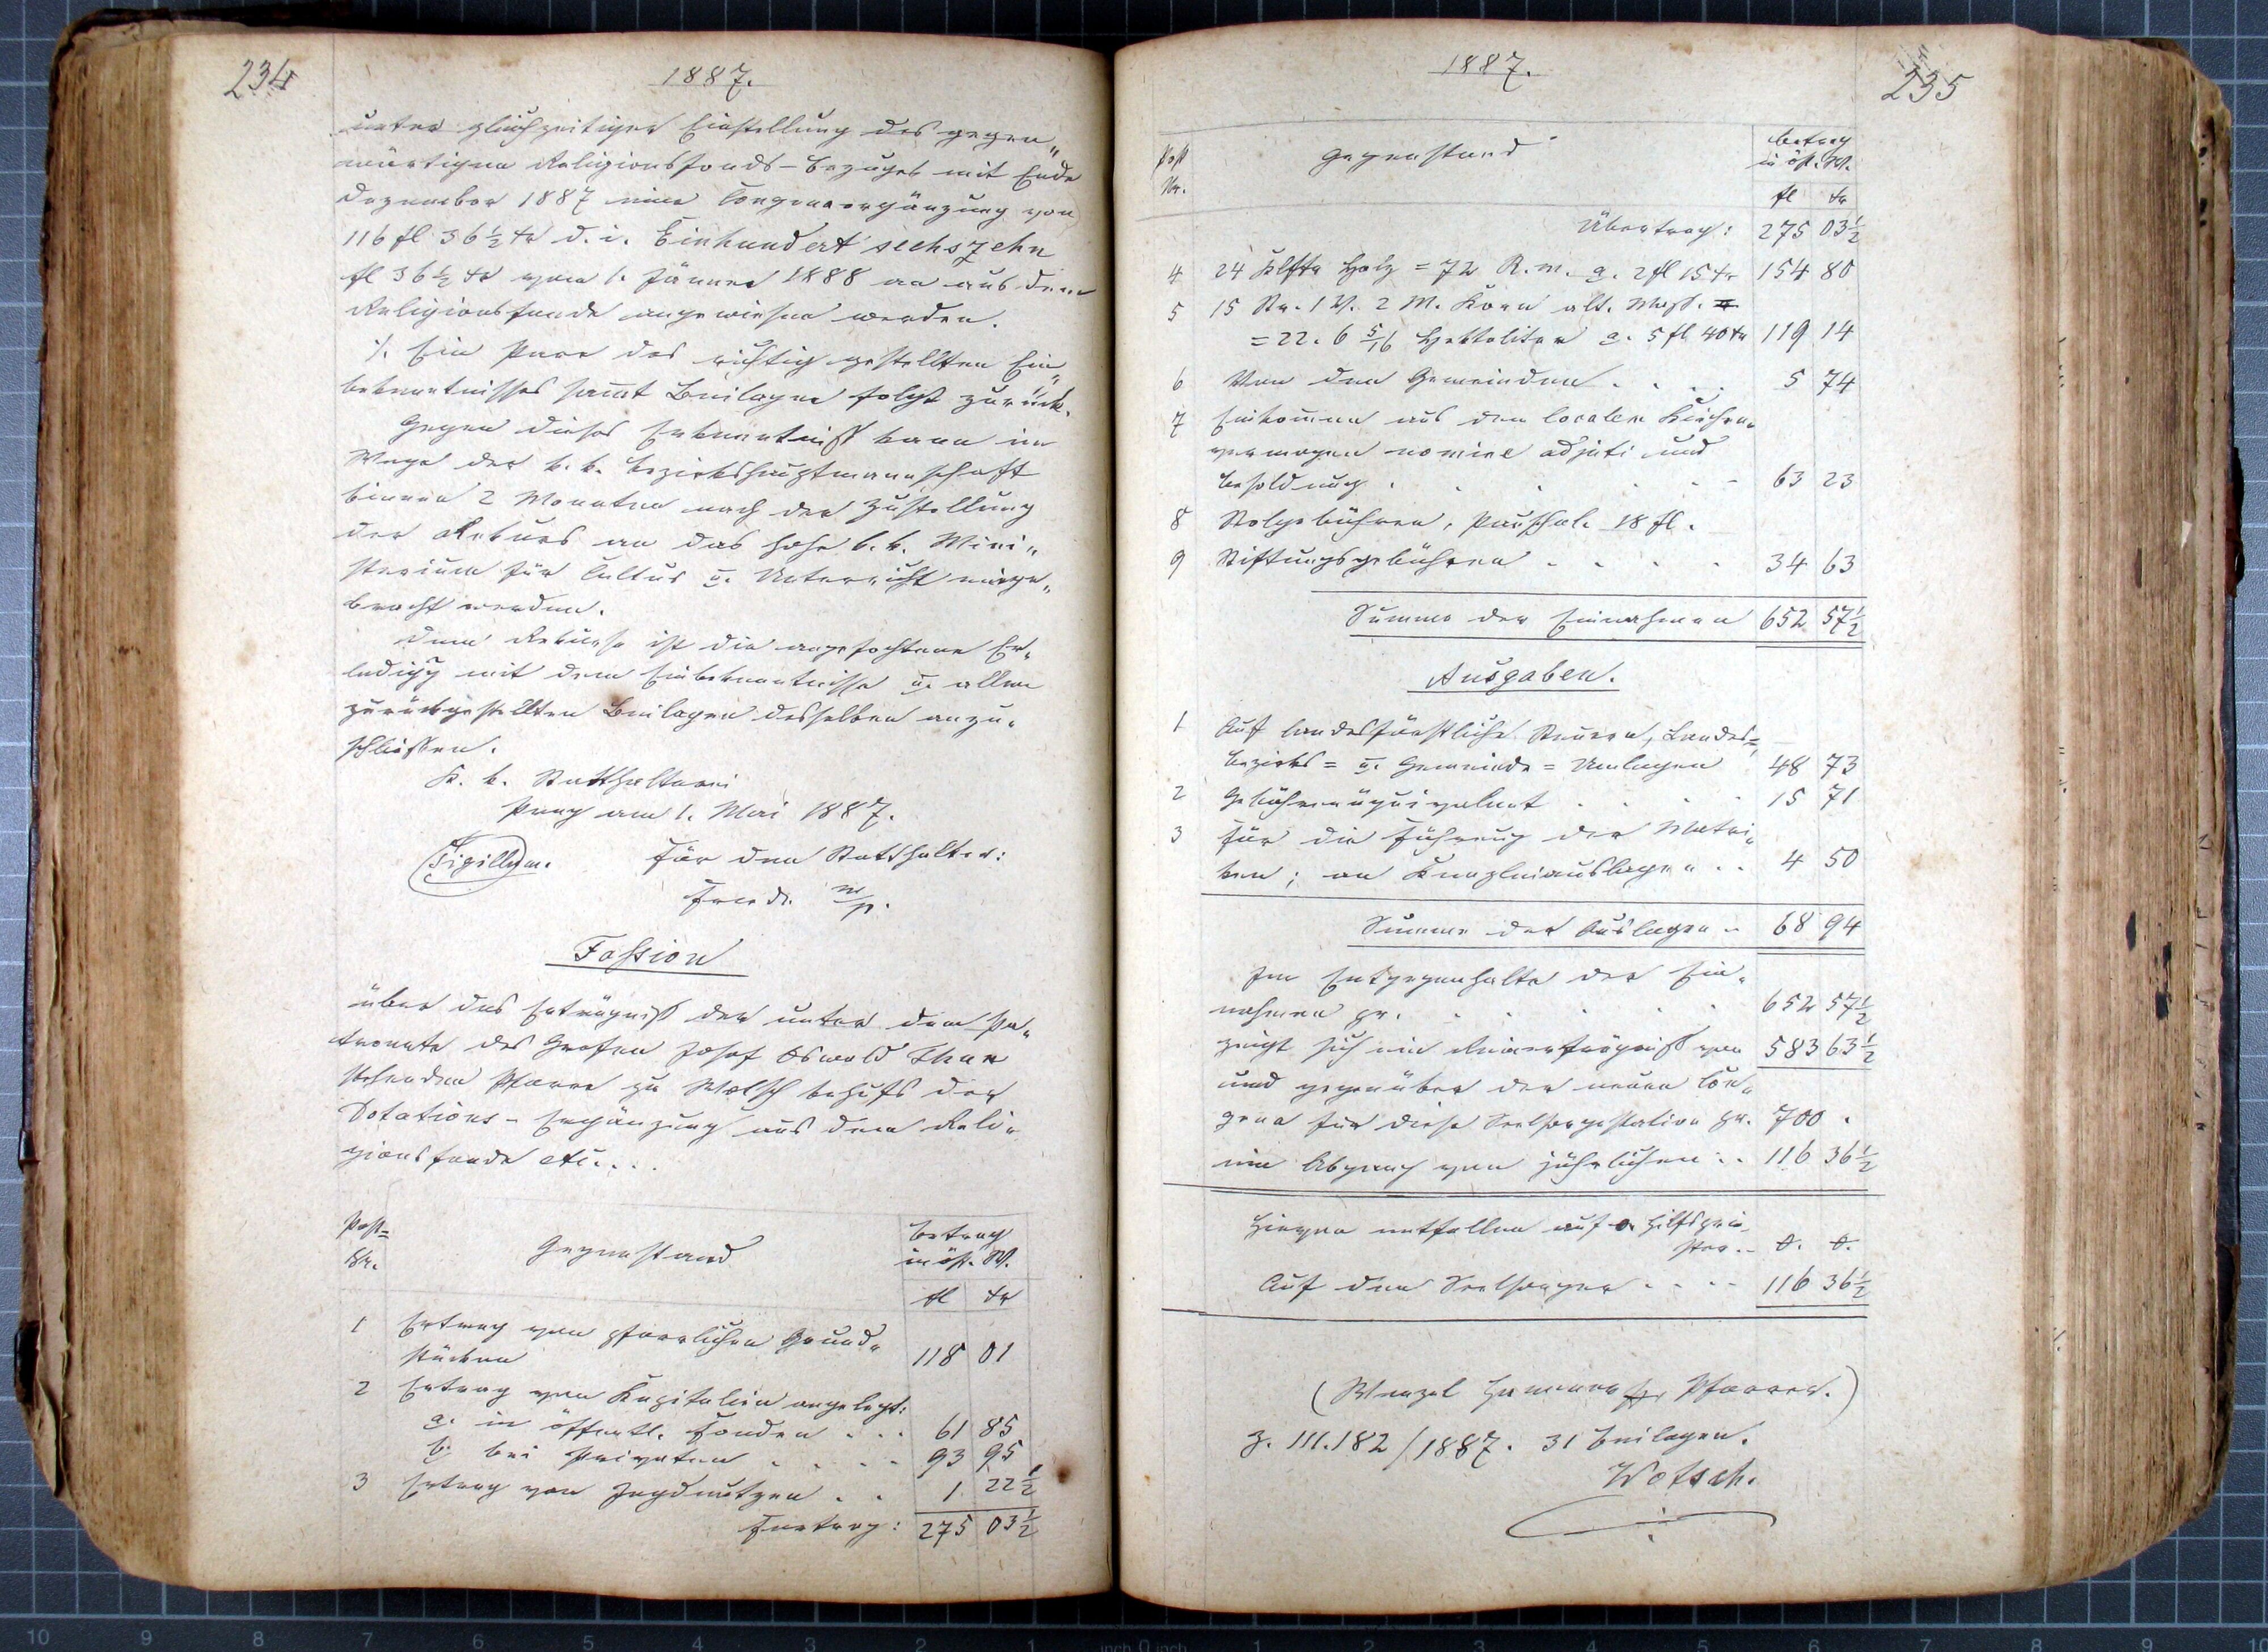 234
1887.
unter gleichzeitiger Einstellung des gegen„
wärtigen Religionsfonds-Bezuges mit Ende
Dezember 1887 eine Congruaergänzung von
116 fl 36½ kr d. i. Einhundert sechszehn
fl 36½ kr vom 1. Jänner 1888 an aus dem
Religionsfonde angewiesen werden.
⁒ Ein Pare des richtig gestellten Ein„
bekenntnisses sam̄t Beilagen folgt zurück.
Gegen dieses Erkenntniß kann im
Wege der k. k. Bezirkshauptmannschaft
binnen 2 Monaten nach der Zustellung
der Rekurs an das hohe k. k. Mini„
sterium für Cultus u. Unterricht einge„
bracht werden.
Dem Rekurse ist die angefochtene Er„
ledigg mit dem Einbekenntnisse u. allen
zurückgestellten Beilagen desselben anzu„
schließen.
K. k. Statthalterei
Prag am 1. Mai 1887.
Sigillum. Für den Statthalter:
m/p.
Fassion
über das Erträgniß der unter dem Pa„
tronate des Grafen Josef Oswald Thun
stehenden Pfarre zu Wælsch behufs der
Dotations-Ergänzung aus dem Reli„
gionsfonde etc....
Post= Gegenstand Betrag
Nr. in öst. W.
fl kr
1 Ertrag von pfarrlichen Grund„
stücken 118 01
2 Ertrag von Kapitalien angelegt:
a. in öffentl. Fonden . . . 61 85
b. bei Privaten . . . . 93 95
3 Ertrag von Jagdnutzen . . 1 22½
Fürtrag: 275 03½
1887.
235
Post Gegenstand Betrag
Nr. in öst. W.
fl kr
Übertrag: 275 03½
4 24 Klftr Holz = 72 R. m. a. 2 fl 15 kr 154 80
5 15 Str. 1 V. 2 M. Korn alt. Maß.
= 22. 6 5/16 Hektoliter a. 5 fl 40 kr 119 14
6 Von den Gemeinden . . . . 5 74
7 Einkom̄en aus dem localen Kirchen„
vermögen nomine adjuti und
Besoldung . . . . . . 63 23
8 Stolgebühren, Pauschal. 18 fl.
9 Stiftungsgebühren . . . . 34 63
Summe der Einnahmen 652 57½
Ausgaben.
1 Auf landesfürstliche Steuern, Landes=
Bezirks= u. Gemeinde=Umlagen 48 73
2 Gebührenäquivalent . . . . 15 71
3 Für die Führung der Matri„
ken; an Kanzleiauslagen . . 4 50
Summe der Auslagen . 68 94
Im Entgegenhalte der Ein„
nahmen pr. . . . . . 652 57½
zeigt sich ein Reinerträgniß von 583 63½
und gegenüber der neuen Con„
grua für diese Seelsorgestation pr. 700 .
ein Abgang von jährlichen . . 116 36½
Hievon entfallen auf 0 Hilfsprie„
ster. - 0. 0.
Auf den Seelsorger . . . . 116 36½
(Wenzel Pfarrer.)
Z. 111.182/1887. 31 Beilagen.
Wotsch.